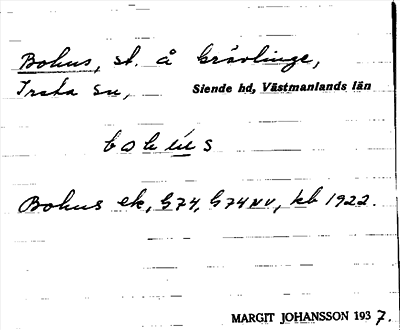 Bohus, st. å Grävlinge,
Irsta sn, Siende hd, Västmanlands län
bohus
Bohus ek, G74, G74NV, kb 1922.
MARGIT JOHANSSON 1937.